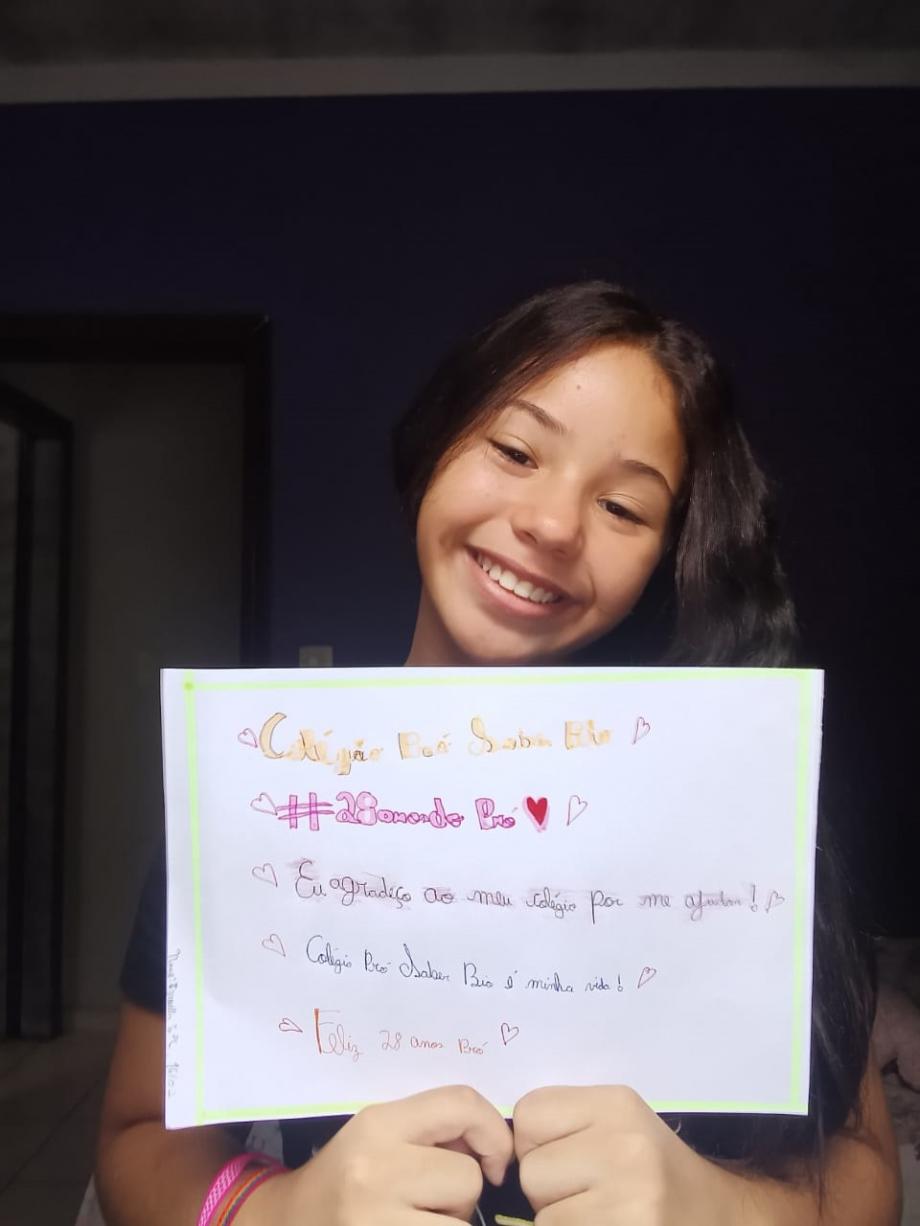 Colégio Pró Saber Bio
#28anosde Pró
Eu agradiço ao meu colégio por me ajudar!
Colégio Pró Saber Bio é minha vida!
Feliz 28 anos Pró
16/02